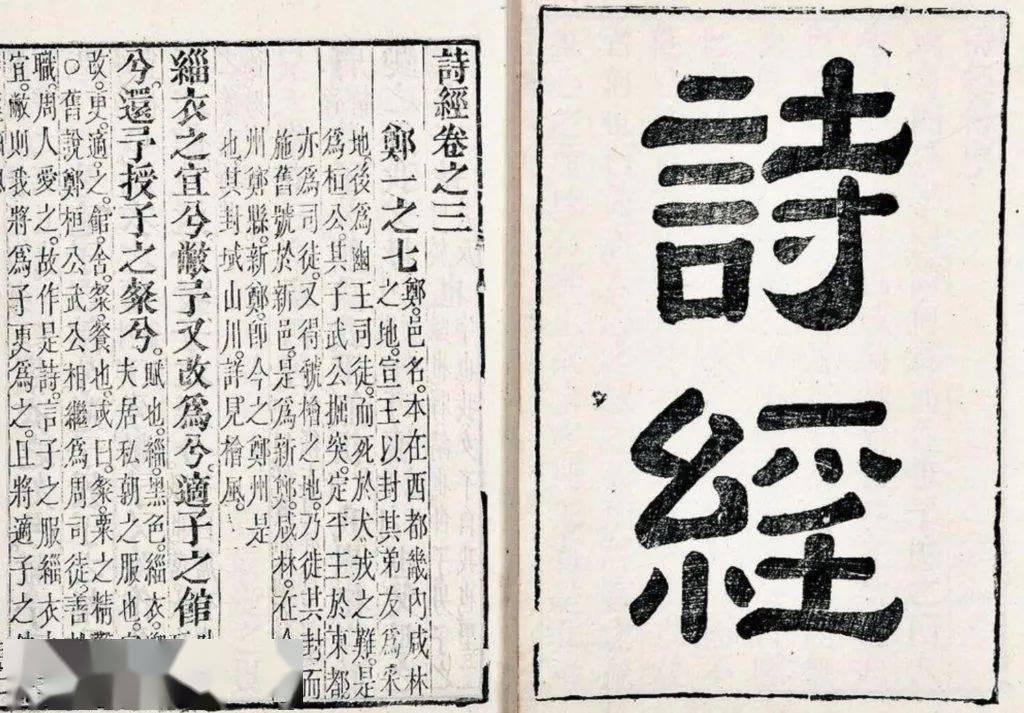 詩經
詩經卷之三
鄭一之七
鄭。邑名。本在西都畿內咸林
之地。宣王以封其弟友爲采
地。後爲幽王司徒。而死於犬戎之難。是
爲桓公。其子武公掘突。定平王於東都
亦爲司徒。又得虢檜之地。乃徙其封而
施舊號於新邑。是爲新鄭。咸林。在
州鄭縣。新鄭。卽今之鄭州是
也。其封域山川。詳見檜風。
緇衣之宜兮敝予又改爲兮。適子之館
兮。還予授子之粲兮。
賦也。緇。黑色。緇衣。
夫居私朝之服也。
改。更。適。之。館。舍。粲。餐也。或曰。粲。粟之精
○舊說鄭桓公武公相繼爲周司徒善
職。周人愛之。故作是詩。言子之服緇衣
宜。敝則我將爲子更爲之。且將適子之